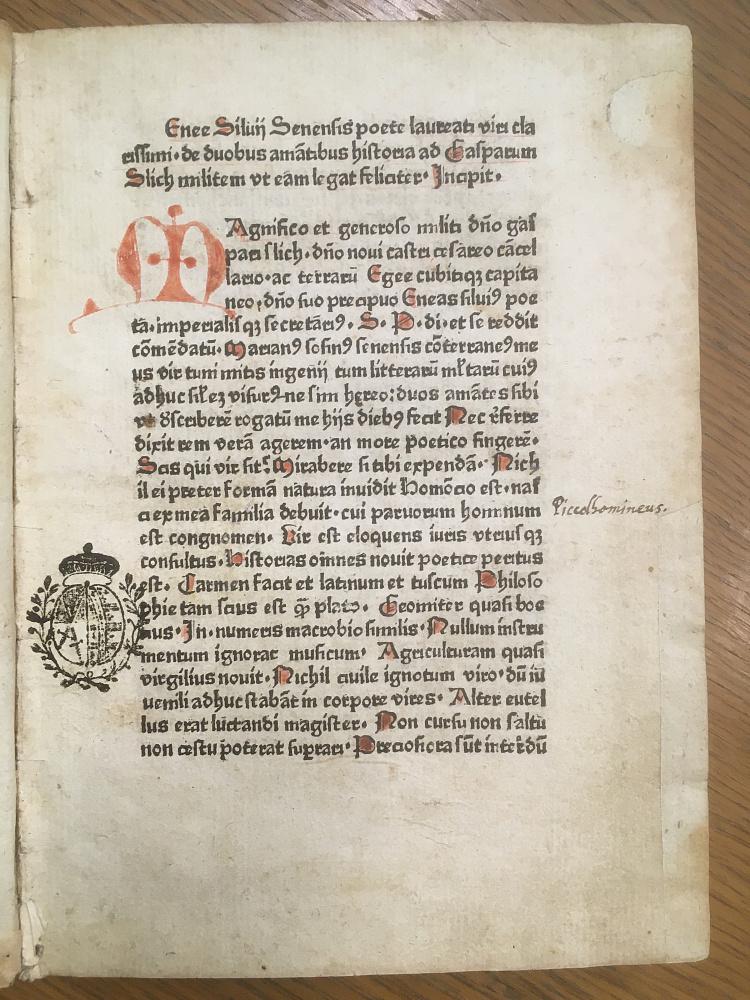 Enee Siluij Senensis poete laureati viri cla
rissimi· de duobus amãtibus historia ad Gasparum
Slich militem vt eam legat feliciter· Incipit·
MAgnifico et generoso militi dño gas
pari slich· dño noui castri cesareo cãcel
lario· ac terrarũ Egee cubitiqꝫ capita
neo, dño suo precipuo Eneas siluiꝰ poe
tã· imperialis qꝫ secretariꝰ· S· P· di· et se reddit
cõmẽdatũ· Marianꝰ sosinꝰ senensis cõterraneꝰ me
us vir tum mitis ingenij tum litterarũ mĺtarũ cuiꝰ
adhuc siĺeꝫ visurꝰ ne sim hereo: duos amãtes sibi
vt describerẽ rogatũ me hijs diebꝰ fecit Nec r̃ferre
dixit rem verã agerem· an more poetico fingerẽ·
Scis qui vir sit· Mirabere si tibi expendã· Nich
il ei preter formã natura inuidit Homõcio est· nas
ci ex mea familia debuit· cui paruorum hominum
est congnomen· Vir est eloquens iuris vtrius qꝫ
consultus· Historias omnes nouit poetice peritus
est· Carmen facit et latinum et tuscum Philoso
phie tam scius est q̃ꝫ plato· Geomiter quasi boe
tius· In· numeris macrobio similis· Nullum instru
mentum ignorat musicum· Agriculturam quasi
virgilius nouit· Nichil ciuile ignotum viro· dũ iũ
uenili adhuc stabãt in corpore vires· Alter eutel
lus erat luctandi magister· Non cursu non saltu
non cestu poterat suꝑari· Preciosiora sũt interdũ
Piccolhomineus.